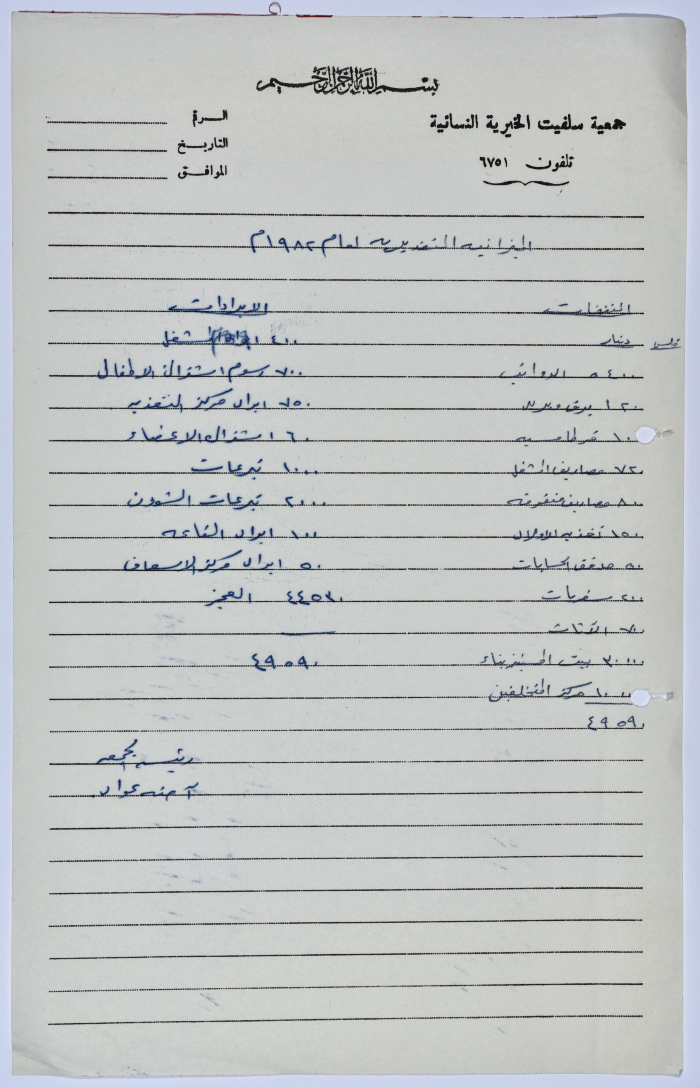 بسم الله الرحمن الرحيم
جمعية سلفيت الخيرية النسائية
تلفون ٦٧٥١
الرقم
التاريخ
الموافق
الميزانيه التقديريه لعام ١٩٨٢م
النفقات
فلس دينار
٥٤٠٠ الرواتب
١٢٠ برق وبريد
١٠٠ قرطاسيه
٧٢٠ مصاريف المشغل
٨٠٠ مصاريف متفرقه
١٥٠ تغذيه الاولاد
٥٠ مدقق الحسابات
٢٠٠ سفريات
٧٠ الاثاث
٣٠٠٠٠ بيت المسنين بناء
١٠٠٠٠ مركز المتخلفين
٤٩٥٩٠
الايرادات
٤٠٠ المشغل
٧٠٠ رسوم اشتراك الاطفال
٧٥٠ ايراد مركز التغذيه
٦٠ اشتراك الاعضاء
١٠٠٠ تبرعات
٢٠٠٠ تبرعات الشؤون
١٠٠ ايراد القاعه
٥٠ ايراد مركز الاسعاف
٤٤٥٣٠ العجز
٤٩٥٩٠
رئيسة الجمعيه